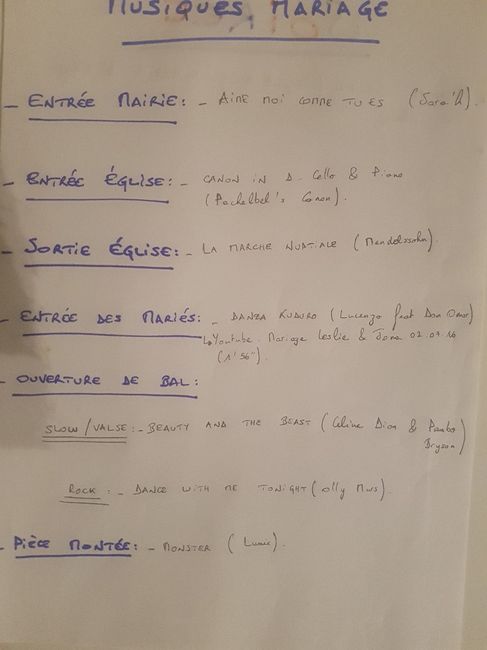 MUSIQUES MARIAGE
- ENTRÉE MAIRIE: - AIME MOI COMME TU ES (Sara'h).
- ENTRÉE ÉGLISE: - CANON IN D - Cello & Piano
(Pachelbel's Canon).
- SORTIE ÉGLISE: - LA MARCHE NUPTIALE (Mendelssohn).
- ENTRÉE DES MARIÉS: - DANZA KUDURO (Lucenzo feat Don Omar)
↳ Youtube. Mariage Leslie & Jona 02.07.16
(1'56").
- OUVERTURE DE BAL:
SLOW/VALSE: - BEAUTY AND THE BEAST (Céline Dion & Peabo
Bryson)
ROCK: - DANCE WITH ME TONIGHT (Olly Murs).
- PIÈCE MONTÉE: - MONSTER (Lumix).